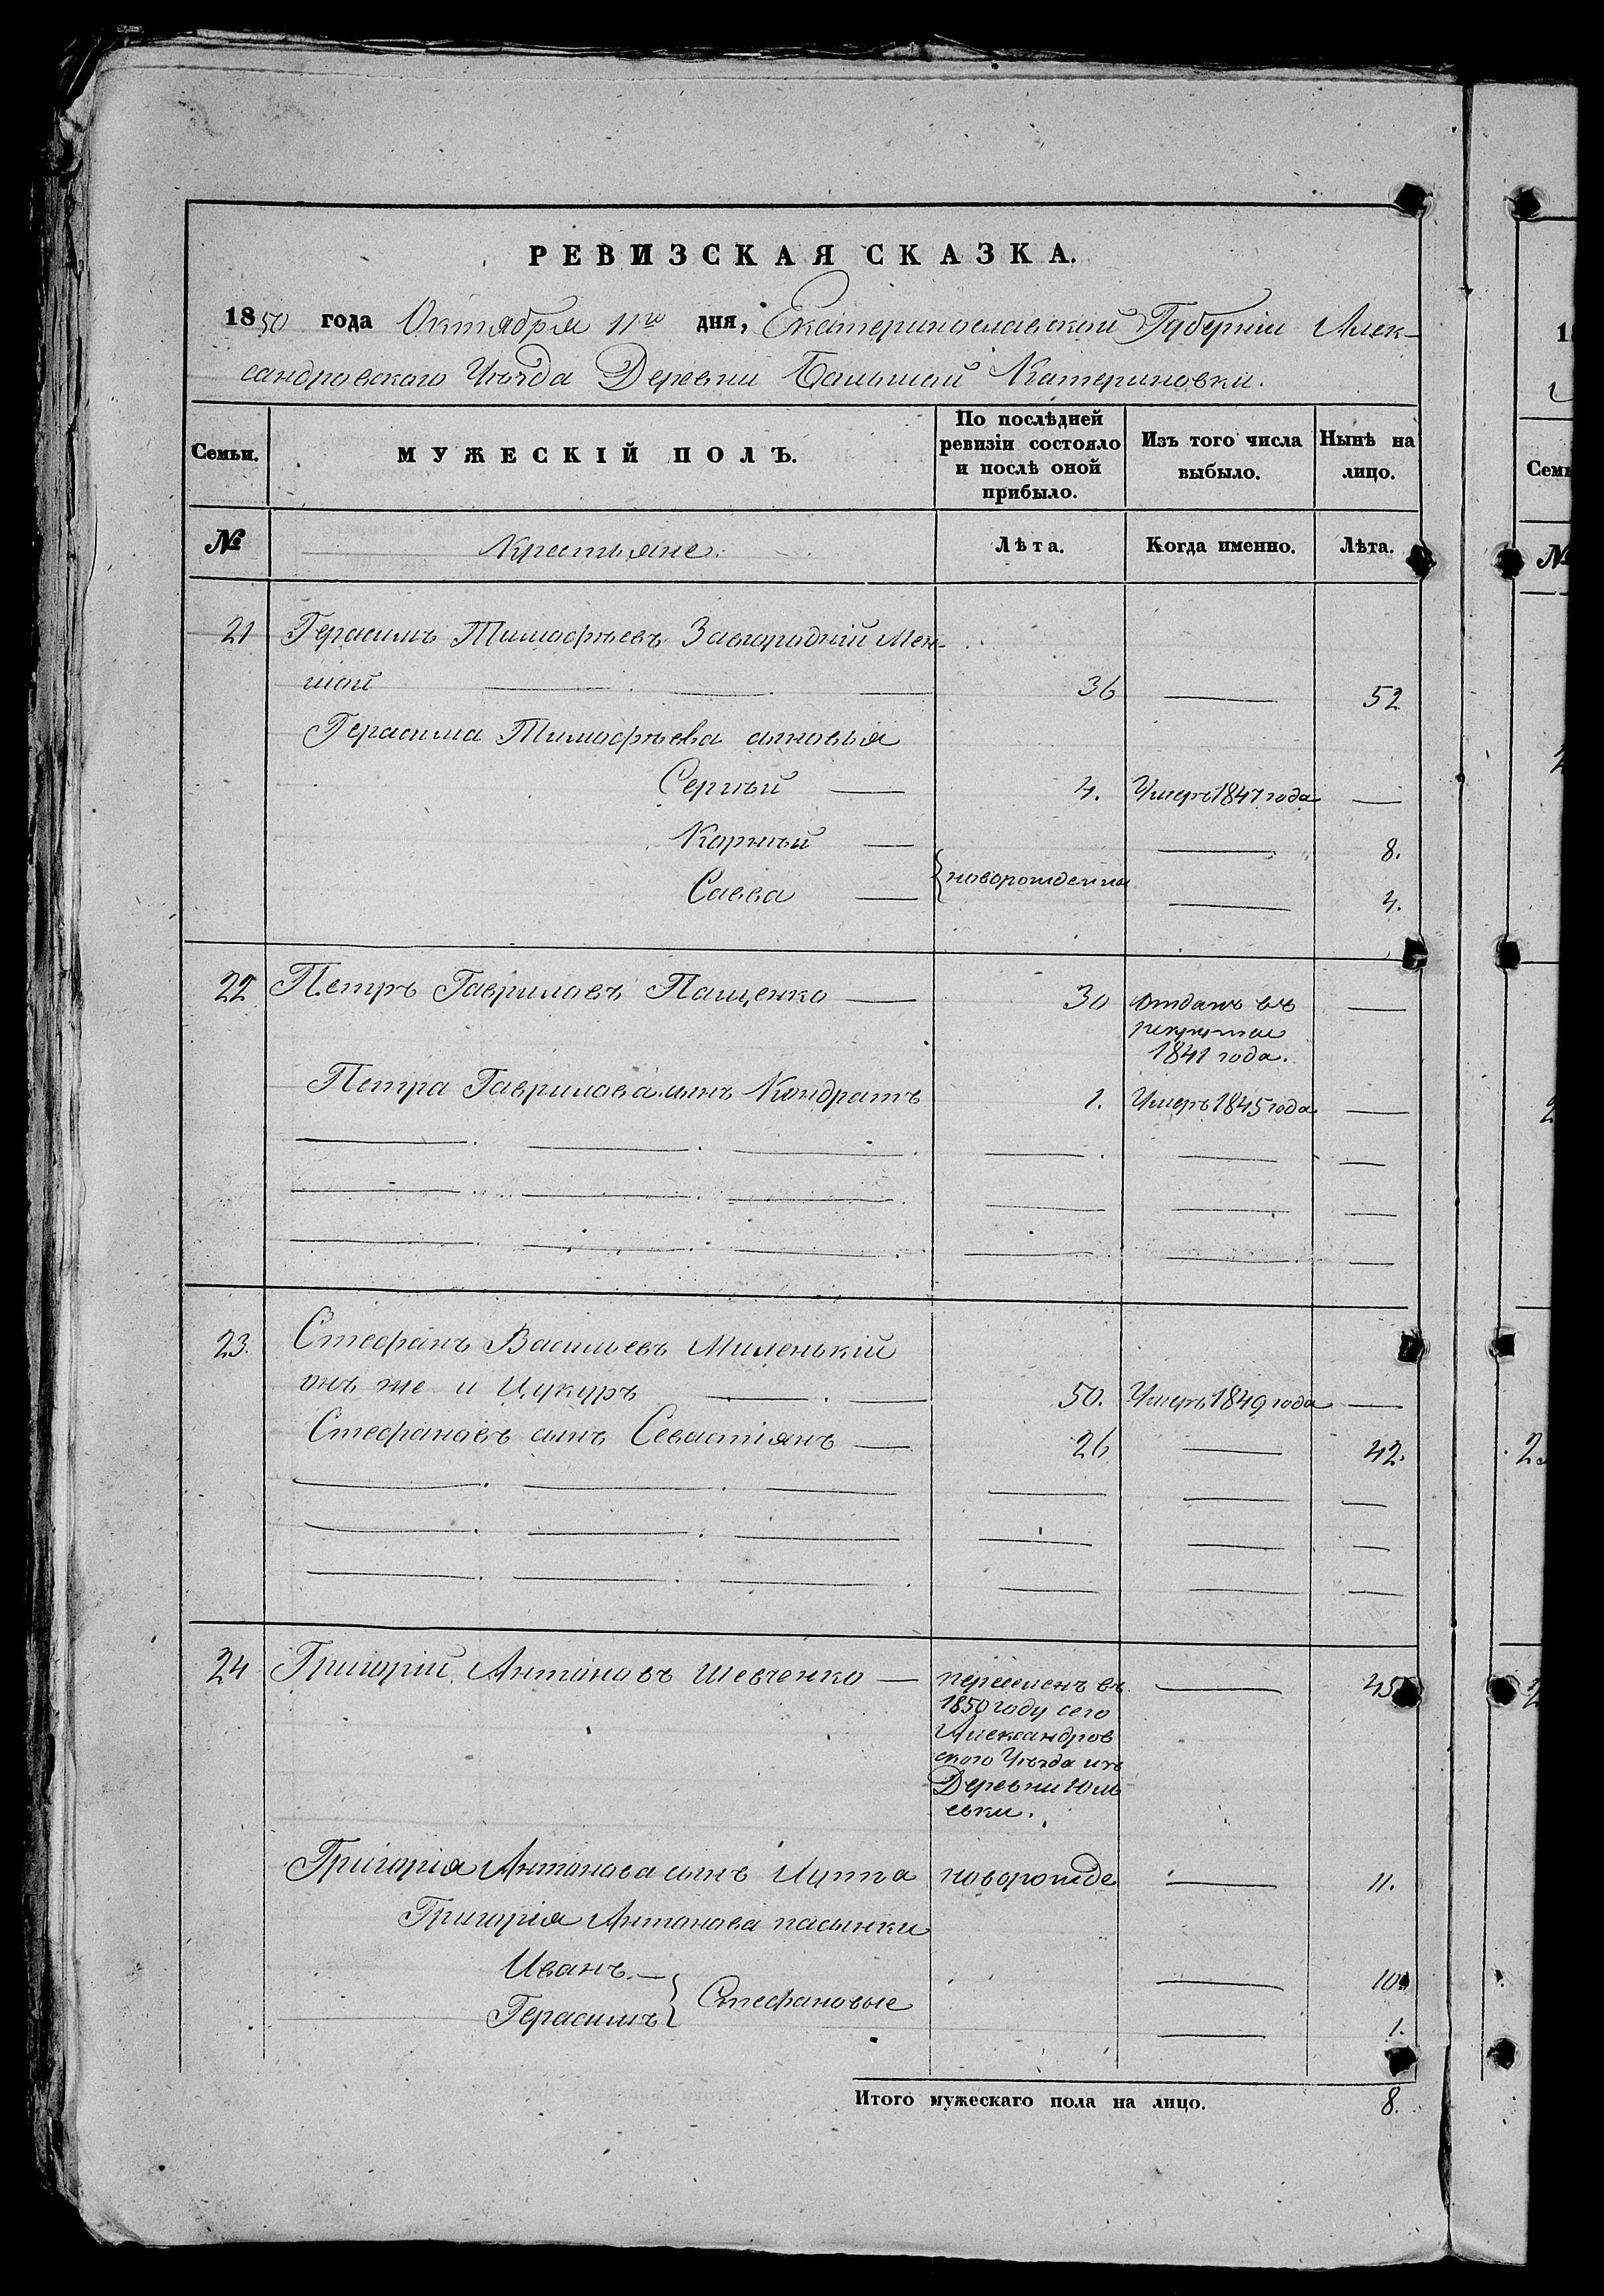 РЕВИЗСКАЯ СКАЗКА.
1850 года Октября 11го дня, Екатеринославской Губерніи Алек-
сандровского Уѣзда Деревни Большой Катериновки.
Семьи. МУЖЕСКІЙ ПОЛЪ. По послѣдней ревизіи состояло и послѣ оной прибыло. Изъ того числа выбыло. Нынѣ на лицо.
№ Крестьяне. Лѣта. Когда именно. Лѣта.
21 Герасимъ Тимофѣевъ Завгородній Мен-
шой 36 52
Герасима Тимофѣева сыновья
Сергѣй 4. Умеръ 1847 года
Корнѣй 8.
новорожденны
Савва 4.
22 Петръ Гавриловъ Пащенко 30 отданъ въ
рекруты
1841 года.
Петра Гаврилова сынъ Кондратъ 1. Умеръ 1845 года
23. Стефанъ Васильевъ Миленькій
онъ же и Цукуръ 50. Умеръ 1849 года
Стефановъ сынъ Севастіянъ 26 42.
24 Григорій Антоновъ Шевченко переселенъ въ 45
1850 году сего
Александров
ского Уѣзда изъ
Деревни Юль
евки.
Григорія Антонова сынъ новорожде 11.
Григорія Антонова пасынки
Иванъ 10
Стефановые
Герасимъ 1.
Итого мужескаго пола на лицо. 8.